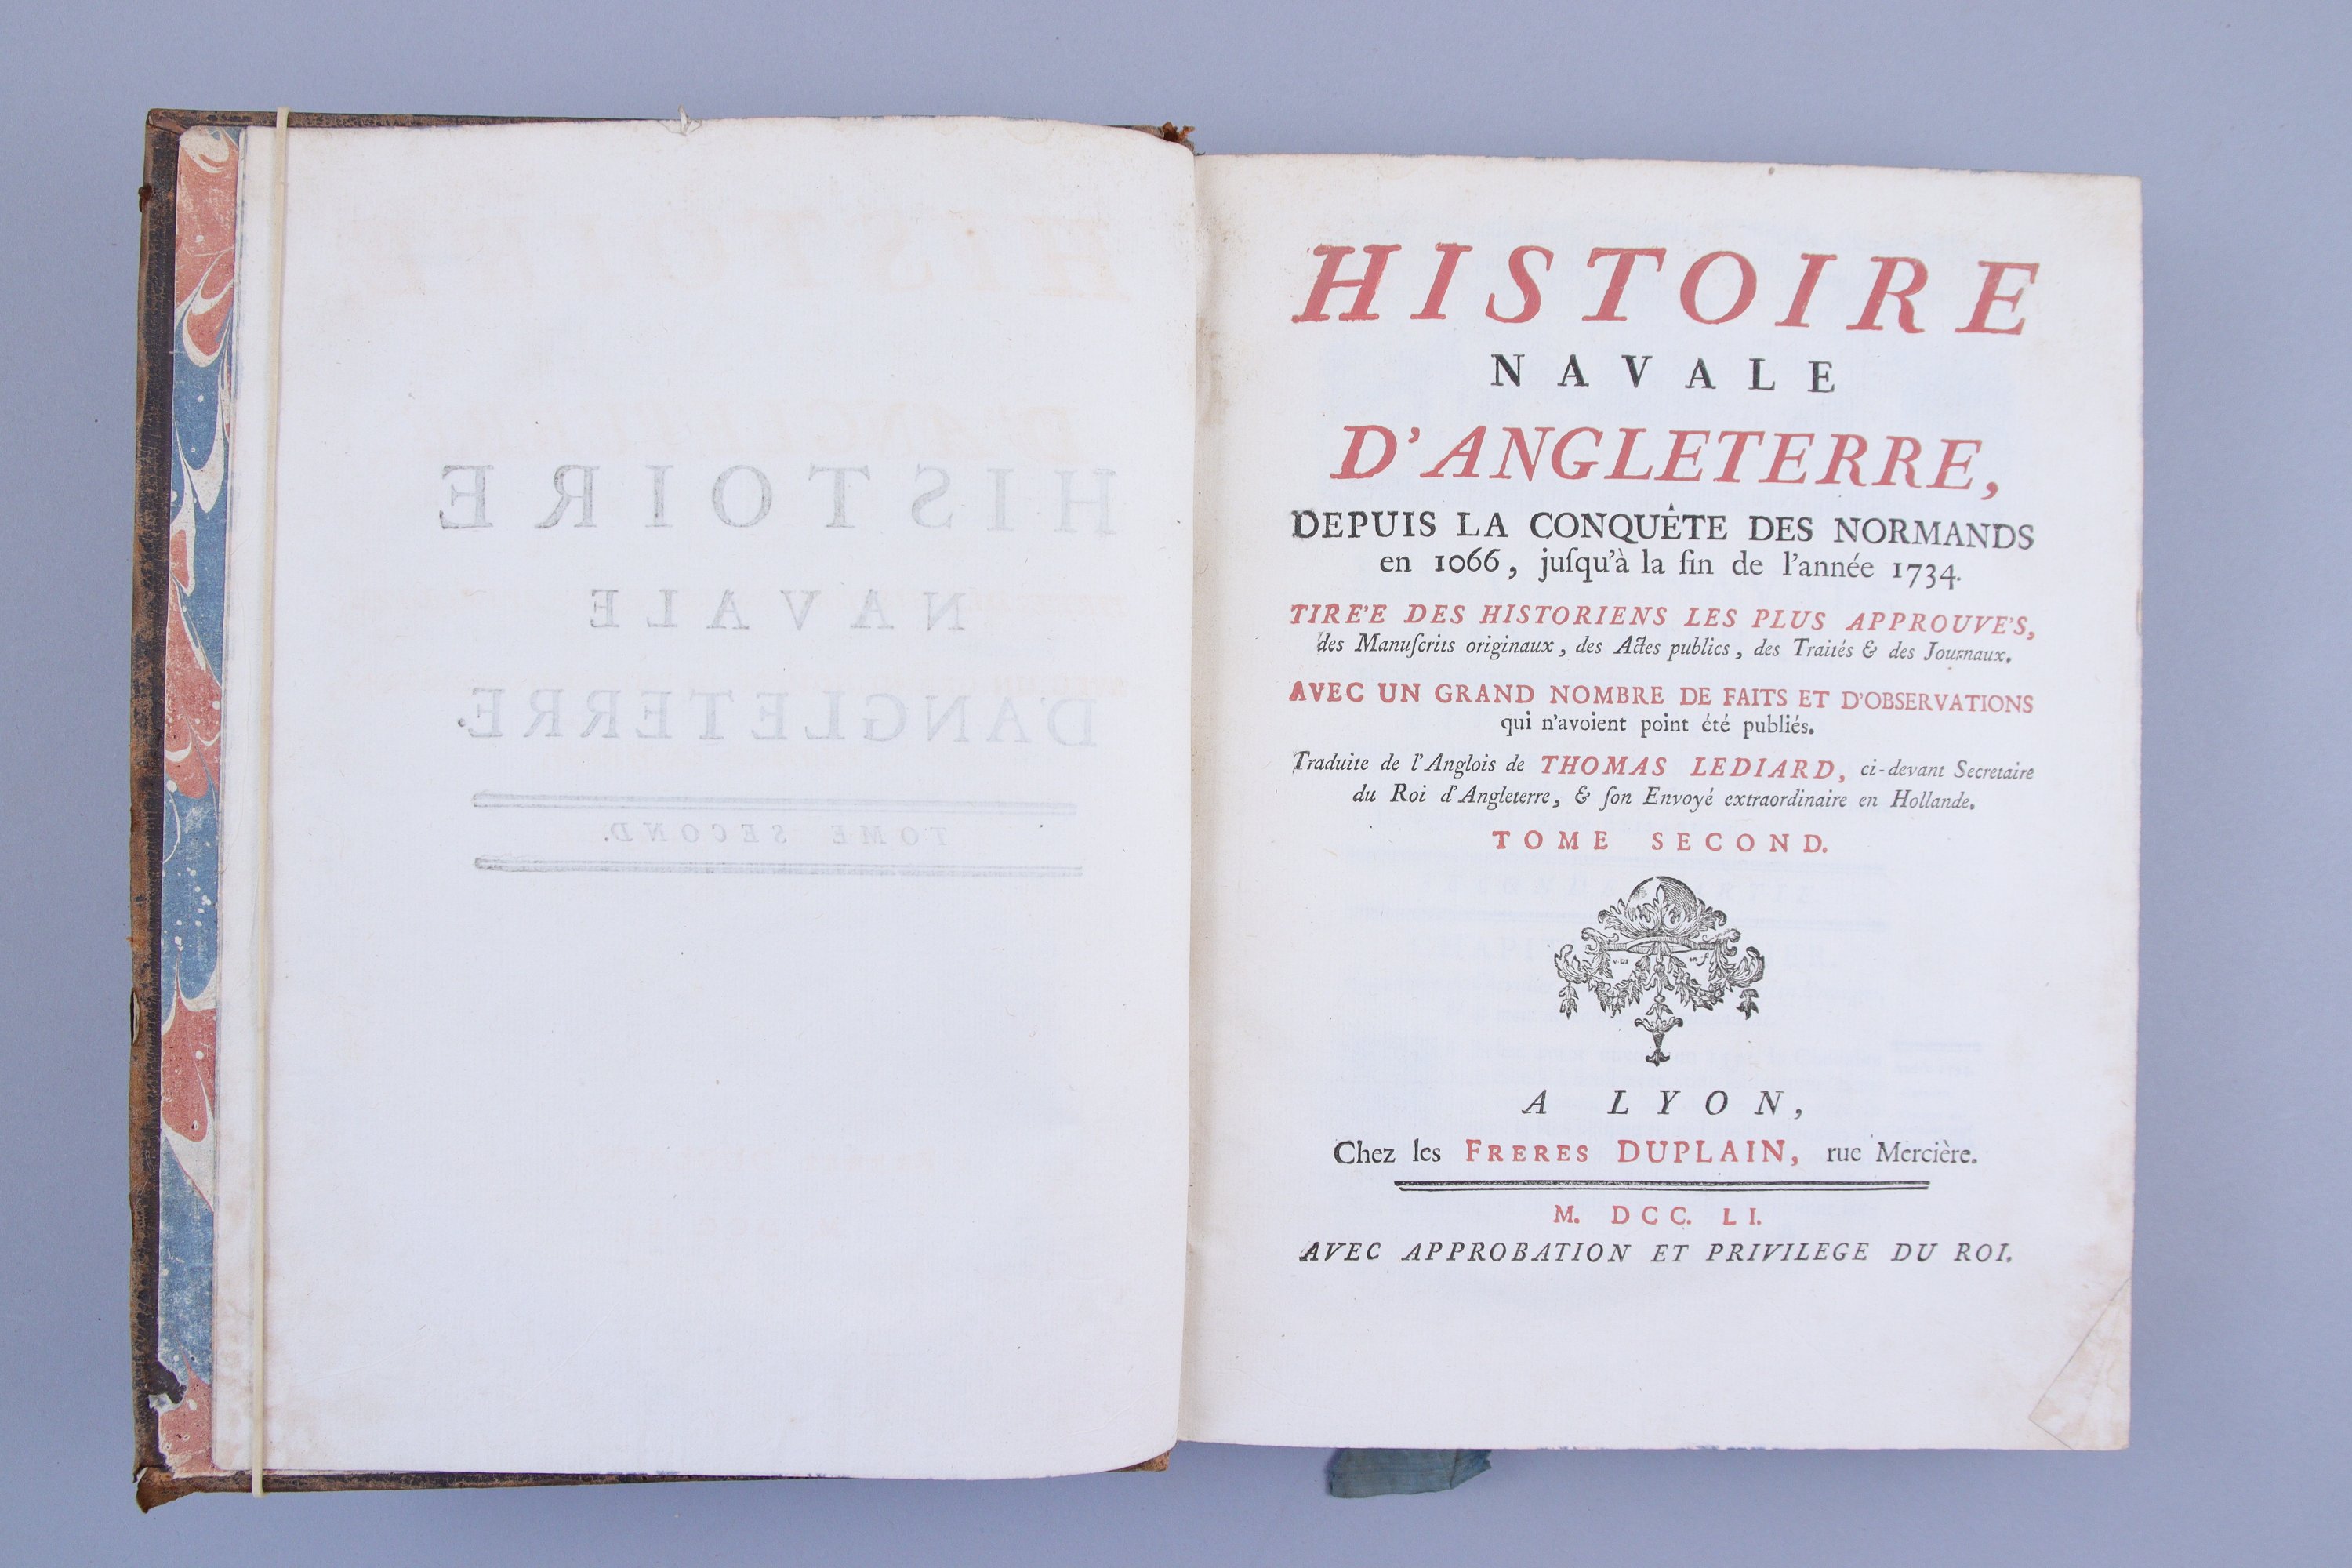 HISTOIRE
NAVALE
D'ANGLETERRE.
TOME SECOND.
HISTOIRE
NAVALE
D'ANGLETERRE,
DEPUIS LA CONQUÊTE DES NORMANDS
en 1066, juſqu'à la fin de l'année 1734.
TIRE'E DES HISTORIENS LES PLUS APPROUVE'S,
des Manuſcrits originaux, des Actes publics, des Traités & des Journaux.
AVEC UN GRAND NOMBRE DE FAITS ET D'OBSERVATIONS
qui n'avoient point été publiés.
Traduite de l'Anglois de THOMAS LEDIARD, ci-devant Secretaire
du Roi d'Angleterre, & ſon Envoyé extraordinaire en Hollande.
TOME SECOND.
A LYON,
Chez les FRERES DUPLAIN, rue Mercière.
M. DCC. LI.
AVEC APPROBATION ET PRIVILEGE DU ROI.